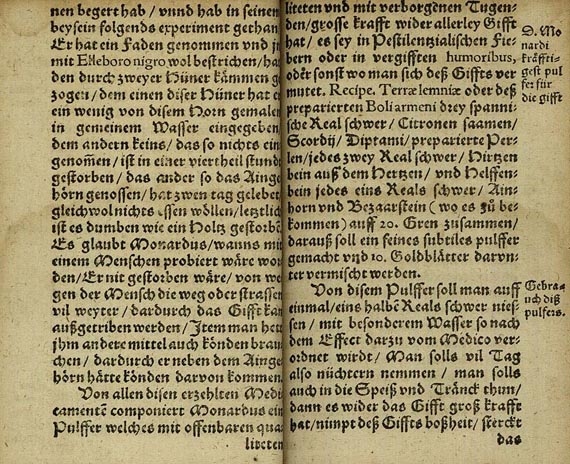 nen begert hab / vnnd hab in seinen
beysein folgends experiment gethan
Er hat ein Faden genommen vnd
mit Elleboro nigro wol bestrichen /
den durch zweyer Hüner kämmen
zogen / dem einen diser Hüner hat
ein wenig von disem Horn gemalen
in gemeinem Wasser eingegeben
dem andern keins / das so nichts ein
genom̄en / ist in einer viertheil stund
gestorben / das ander so das Ainge
hörn genossen / hat zwen tag gelebet
gleichwol nichts essen wöllen / letztlich
ist es dumben wie ein Holtz gestorbē
Es glaubt Monardus / wanns mit
einem Menschen probiert wäre wor
den / Er nit gestorben wäre / von we
gen der Mensch die weg oder strassen
vil weyter / dardurch das Gifft kan
außgetriben werden / Item man hett
jhm andere mittel auch könden brau
chen / dardurch er neben dem Ainge
hörn hätte könden darvon kommen
Von allen disen erzehlten Medi
camentē componiert Monardus ein
Pulffer welches mit offenbaren qua
liteten
liteten vnd mit verborgdnen Tugen-
den / grosse krafft wider allerley Gifft
hat / es sey in Pestilentzialischen Fie-
bern oder in vergifften humoribus,
oder sonst wo man sich deß Giffts ver
mutet. Recipe, Terræ lemniæ oder deß
preparierten Boli armeni drey spanni-
sche Real schwer / Citronen saamen /
Scordij / Diptami / preparierte Per-
len / jedes zwey Real schwer / Hirtzen
bein auß dem Hertzen / vnd Helffen-
bein jedes eins Reals schwer / Ain-
horn vnd Bezaarstein ( wo es zů be-
kommen ) auff 20. Gren zusammen /
darauß soll ein feines subtiles pulffer
gemacht vnd 10. Goldblätter darun-
ter vermischt werden.
Von disem Pulffer soll man auff
einmal / eins halbē Reals schwer nies-
sen / mit besonderem Wasser so nach
dem Effect darzu vom Medico ver-
ordnet wirdt / Man solls vil Tag
also nüchtern nemmen / man solls
auch in die Speiß vnd Tränck thun /
dann es wider das Gifft groß krafft
hat / nimpt deß Giffts boßheit / sterckt
das
D. Mo
nardi
kräffti-
gest pul
fer für
die gifft
Gebra-
uch diß
pulfers.